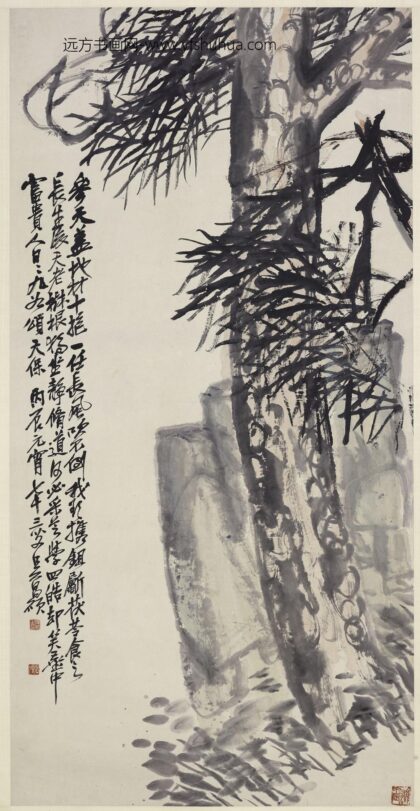 远方书画网
參天蓋地材十抱一任長風吹不倒我欲攜鉏斸茯苓食之
長生後天老樹根獨坐靜脩道何必采芝學四皓却笑中
富貴人日日九如頌天保 丙辰元宵 七十三 吳昌碩